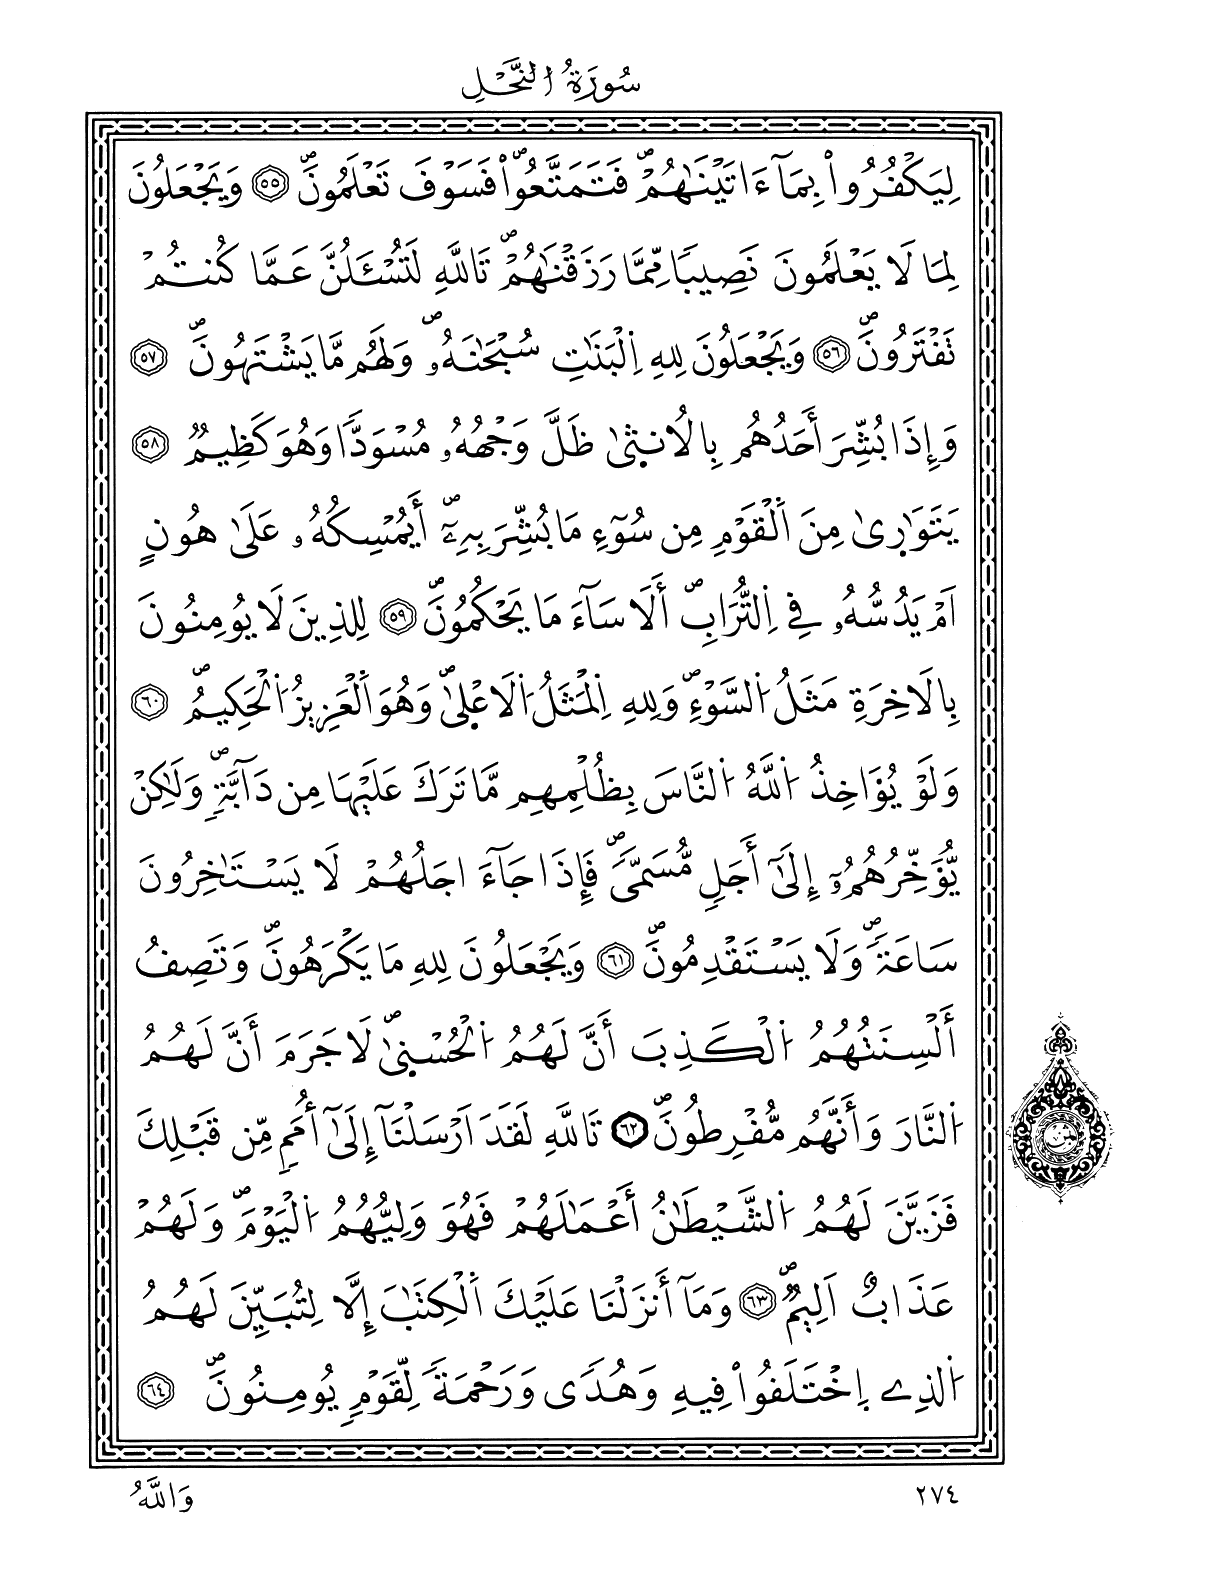 سُورَةُ النَّحْلِ
لِيَكْفُرُواْ بِمَآ ءَاتَيْنَٰهُمْۖ فَتَمَتَّعُواْۖ فَسَوْفَ تَعْلَمُونَۖ ٥٥ وَيَجْعَلُونَ
لِمَا لَا يَعْلَمُونَ نَصِيبٗا مِّمَّا رَزَقْنَٰهُمْۖ تَاللَّهِ لَتُسْـَٔلُنَّ عَمَّا كُنتُمْ
تَفْتَرُونَۖ ٥٦ وَيَجْعَلُونَ لِلهِ اِ۬لْبَنَٰتِ سُبْحَٰنَهُۥۖ وَلَهُم مَّا يَشْتَهُونَۖ ٥٧
وَإِذَا بُشِّرَ أَحَدُهُم بِالُانث۪ىٰ ظَلَّ وَجْهُهُۥ مُسْوَدّٗا وَهُوَ كَظِيمٞ ٥٨
يَتَوَٰر۪ىٰ مِنَ اَ۬لْقَوْمِ مِن سُوٓءِ مَا بُشِّرَ بِهِۦٓۖ أَيُمْسِكُهُۥ عَلَىٰ هُونٍ
اَمْ يَدُسُّهُۥ فِے اِ۬لتُّرَابِۖ أَلَا سَآءَ مَا يَحْكُمُونَۖ ٥٩ لِلذِينَ لَا يُومِنُونَ
بِالَاخِرَةِ مَثَلُ اُ۬لسَّوْءِۖ وَلِلهِ اِ۬لْمَثَلُ اُ۬لَاعْل۪ىٰۖ وَهُوَ اَ۬لْعَزِيزُ اُ۬لْحَكِيمُۖ ٦٠
وَلَوْ يُؤَاخِذُ اُ۬للَّهُ اُ۬لنَّاسَ بِظُلْمِهِم مَّا تَرَكَ عَلَيْهَا مِن دَآبَّةٖۖ وَلَٰكِنْ
يُّؤَخِّرُهُمُۥٓ إِلَىٰٓ أَجَلٖ مُّسَمّٗىۖ فَإِذَا جَآءَ اجَلُهُمْ لَا يَسْتَٰخِرُونَ
سَاعَةٗۖ وَلَا يَسْتَقْدِمُونَۖ ٦١ وَيَجْعَلُونَ لِلهِ مَا يَكْرَهُونَۖ وَتَصِفُ
أَلْسِنَتُهُمُ اُ۬لْكَذِبَ أَنَّ لَهُمُ اُ۬لْحُسْن۪ىٰۖ لَا جَرَمَ أَنَّ لَهُمُ
اُ۬لنَّارَ وَأَنَّهُم مُّفْرِطُونَۖ ٦٢ تَاللَّهِ لَقَدَ اَرْسَلْنَآ إِلَىٰٓ أُمَمٖ مِّن قَبْلِكَ
فَزَيَّنَ لَهُمُ اُ۬لشَّيْطَٰنُ أَعْمَٰلَهُمْ فَهُوَ وَلِيُّهُمُ اُ۬لْيَوْمَۖ وَلَهُمْ
عَذَابٌ اَلِيمٞۖ ٦٣ وَمَآ أَنزَلْنَا عَلَيْكَ اَ۬لْكِتَٰبَ إِلَّا لِتُبَيِّنَ لَهُمُ
اُ۬لذِے اِ۪خْتَلَفُواْ فِيهِ وَهُدٗى وَرَحْمَةٗ لِّقَوْمٖ يُومِنُونَۖ ٦٤
وَاللَّهُ
٢٧٤